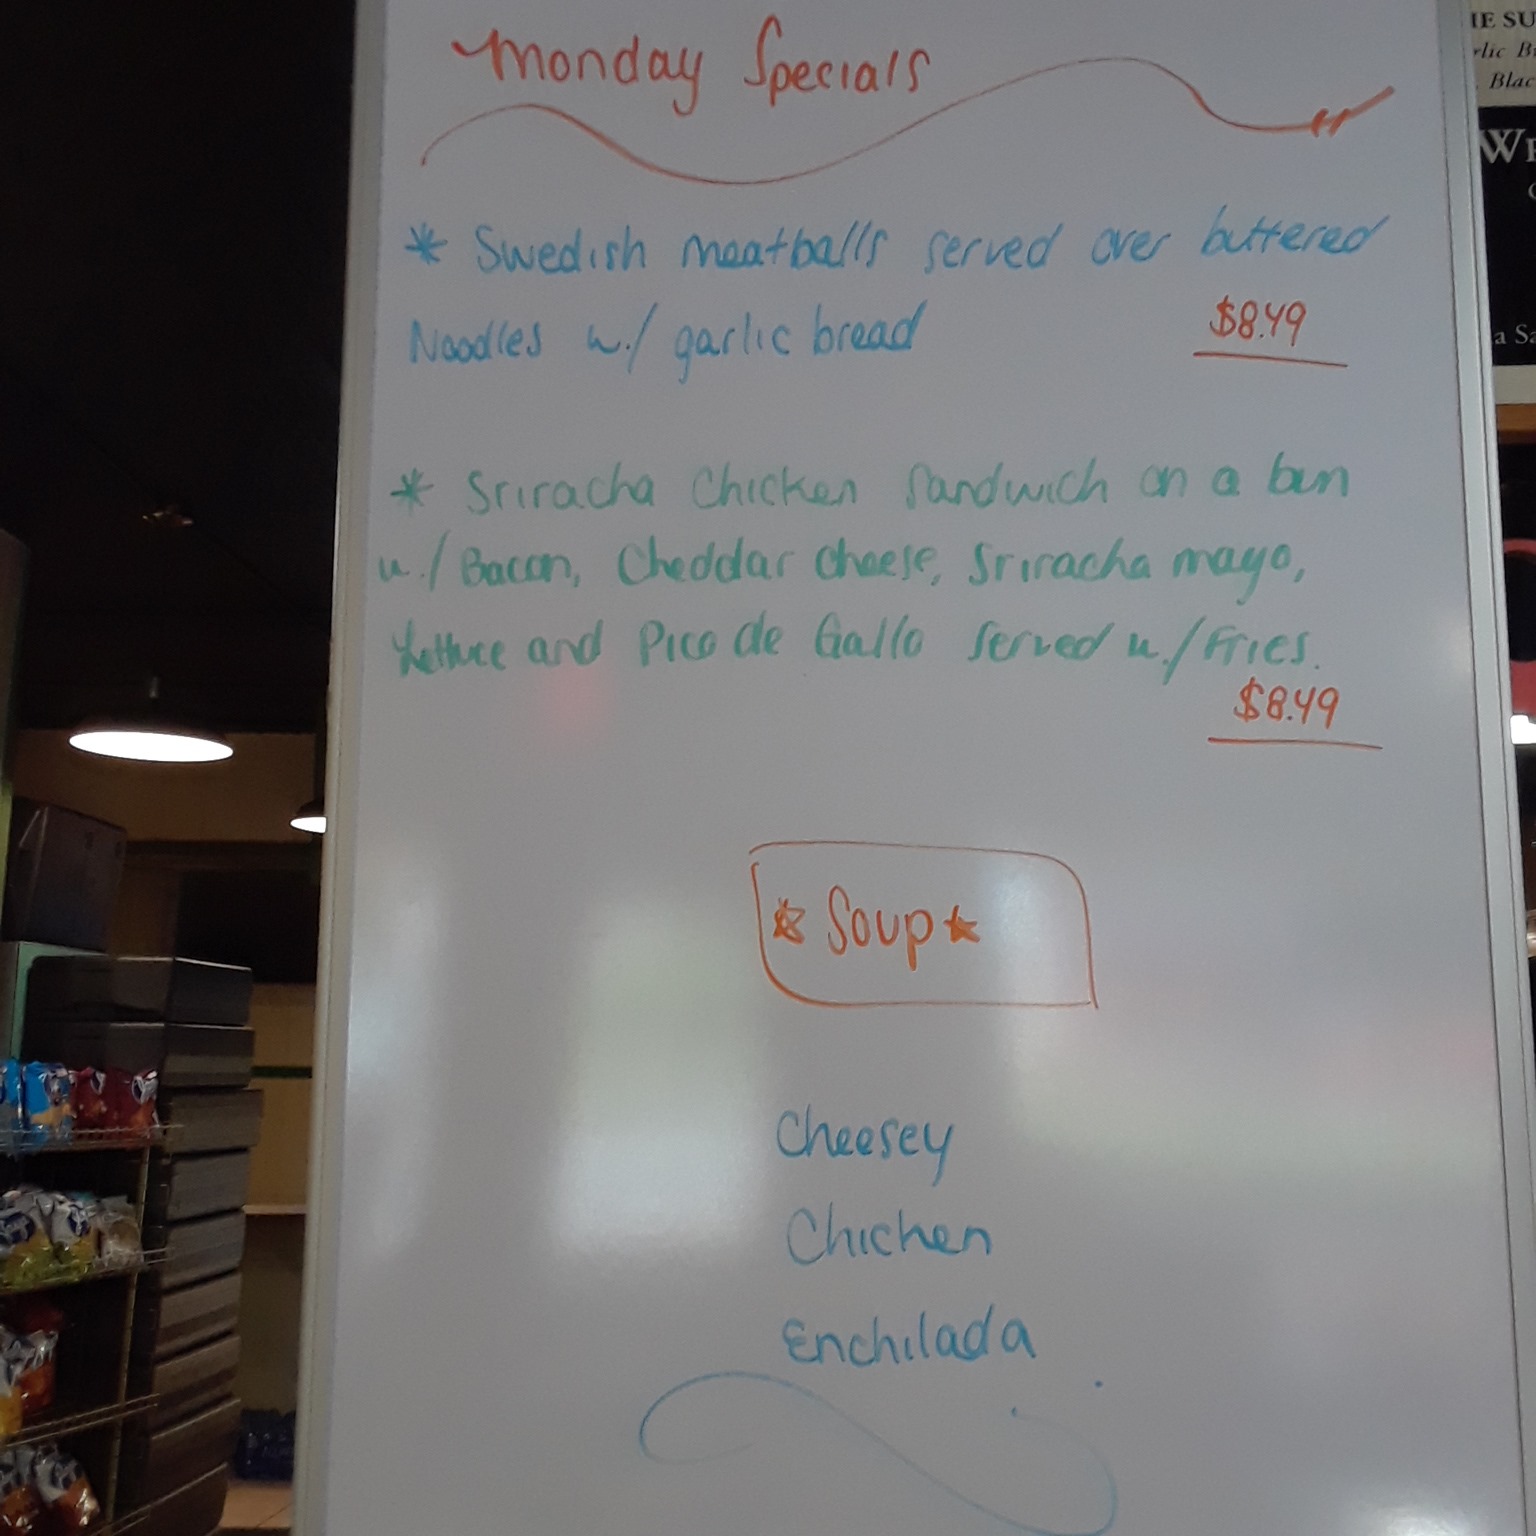 Monday Specials
* Swedish meatballs served over buttered
Noodles w/ garlic bread
$8.49
* Sriracha Chicken Sandwich on a bun
w/ Bacon, Cheddar cheese, Sriracha mayo,
Lettuce and Pico de Gallo served w/ Fries.
$8.49
Soup
Cheesey
Chicken
Enchilada